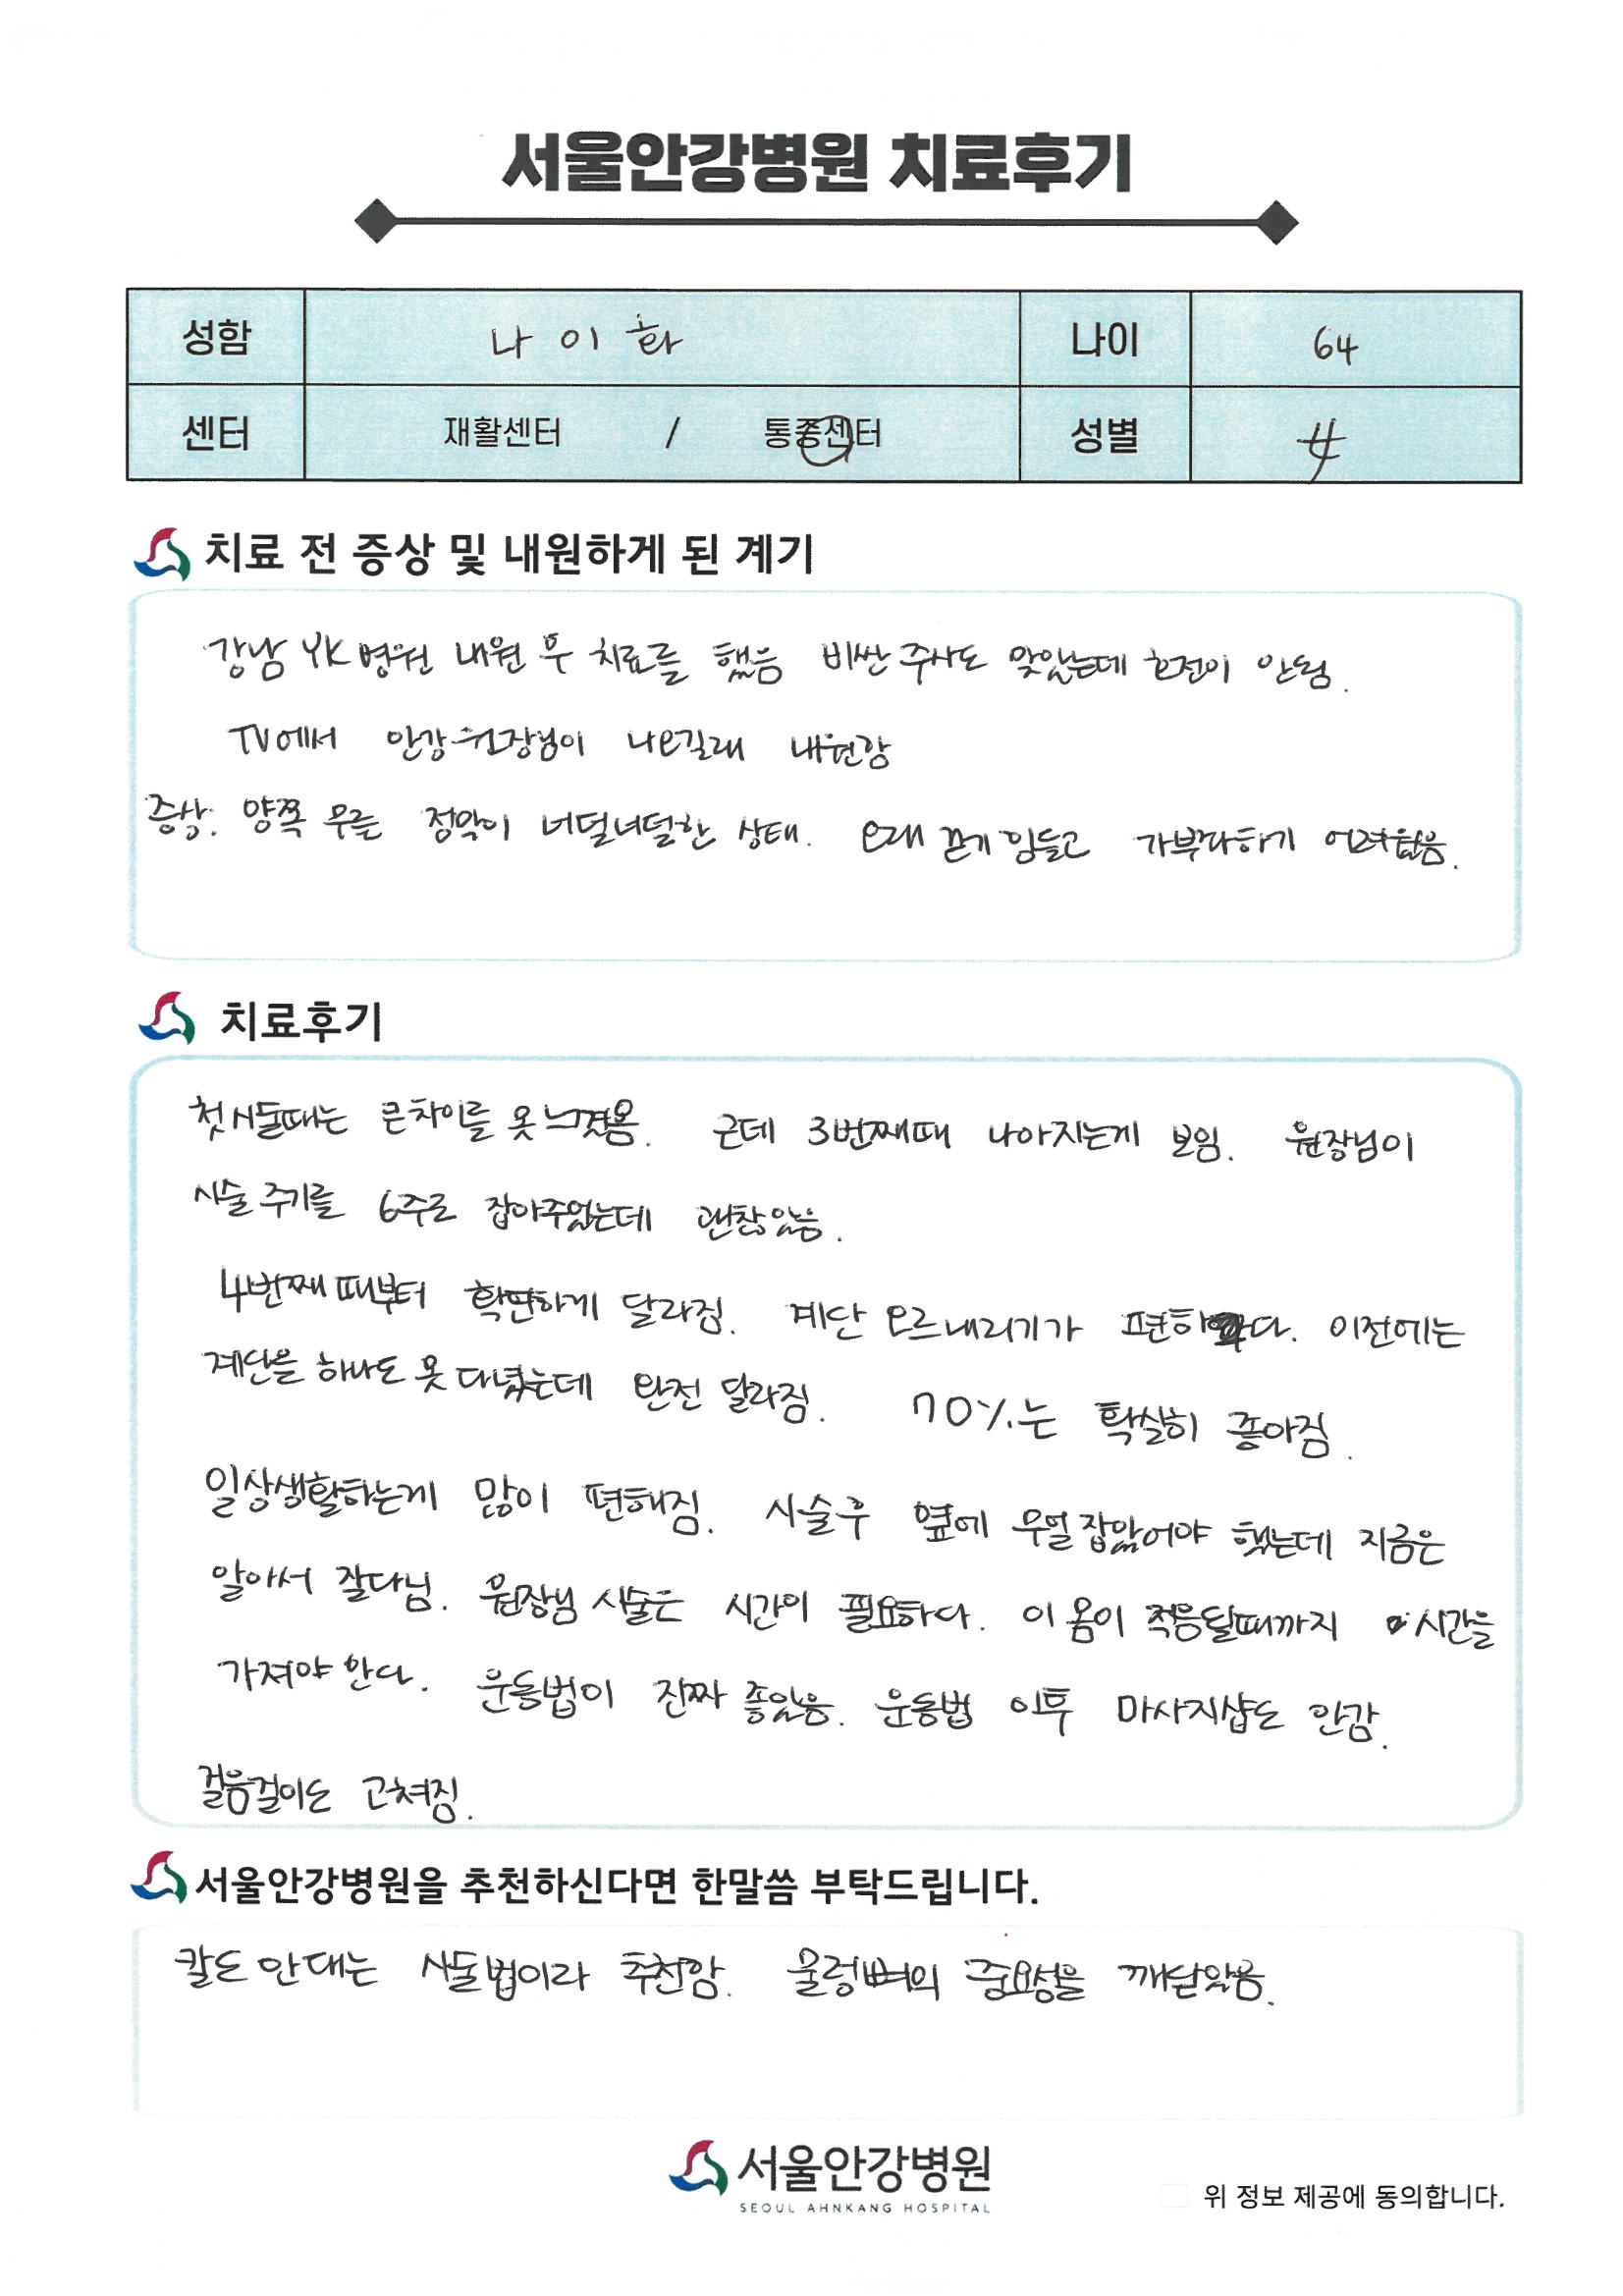 서울안강병원 치료후기
성함 나이화 나이 64
센터 재활센터 / 통증센터 성별 女
치료 전 증상 및 내원하게 된 계기
강남 YK병원 내원 후 치료를 했음 비싼 주사도 맞았는데 호전이 안됨.
TV에서 안강 원장님이 나오길래 내원함
증상: 양쪽 무릎 점막이 너덜너덜한 상태. 오래 걷기 힘들고 가부좌하기 어려웠음.
치료후기
첫 시술때는 큰차이를 못 느꼈음. 근데 3번째때 나아지는게 보임. 원장님이
시술 주기를 6주로 잡아주었는데 괜찮았음.
4번째 때부터 확연하게 달라짐. 계단 오르내리기가 편하다. 이전에는
계단을 하나도 못 다녔는데 완전 달라짐. 70%는 확실히 좋아짐.
일상생활하는게 많이 편해짐. 시술후 옆에 무얼 잡았어야 했는데 지금은
알아서 잘다님. 원장님 시술은 시간이 필요하다. 이 몸이 적응될때까지 시간을
가져야 한다. 운동법이 진짜 좋았음. 운동법 이후 마사지샵도 안감.
걸음걸이도 고쳐짐.
서울안강병원을 추천하신다면 한말씀 부탁드립니다.
칼도 안대는 시술법이라 추천함. 물렁뼈의 중요성을 깨달았음.
서울안강병원
SEOUL AHNKANG HOSPITAL
위 정보 제공에 동의합니다.